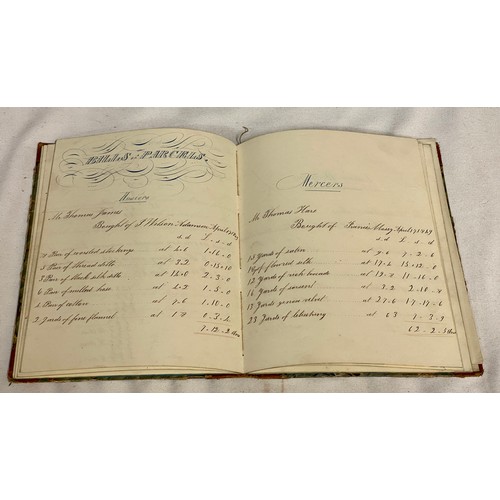 BILLS of PARCELS.
Hosiers
Mr Thomas James
Bought of J Wilson
s. d. £. s. d
Pair of worsted stockings at 4.6 1.16.0
5 Pair of thread ditto at 3.2 0.15.10
3 Pair of black silk ditto at 14.0 2.2.0
6 Pair of milled hose at 4.2 1.5.0
4 Pair of cotton at 7.6 1.10.0
2 Yards of fine flannel at 1.
7.12.2
Mercers
Mr Thomas Hare
Bought of Francis April 7 1869
s. d £. s. d
15 Yards of satin at 9.6 7.2.6
18 Yds of flowered silk at 17.4 15.12.0
12 Yards of rich brocade at 19.8 11.16.0
16 Yards of sarsnet at 3.2 2.10.8
13 Yards genoa velvet at 27.6 17.17.6
23 Yards of lutestring at 6.3 7.3.9
62.2.5